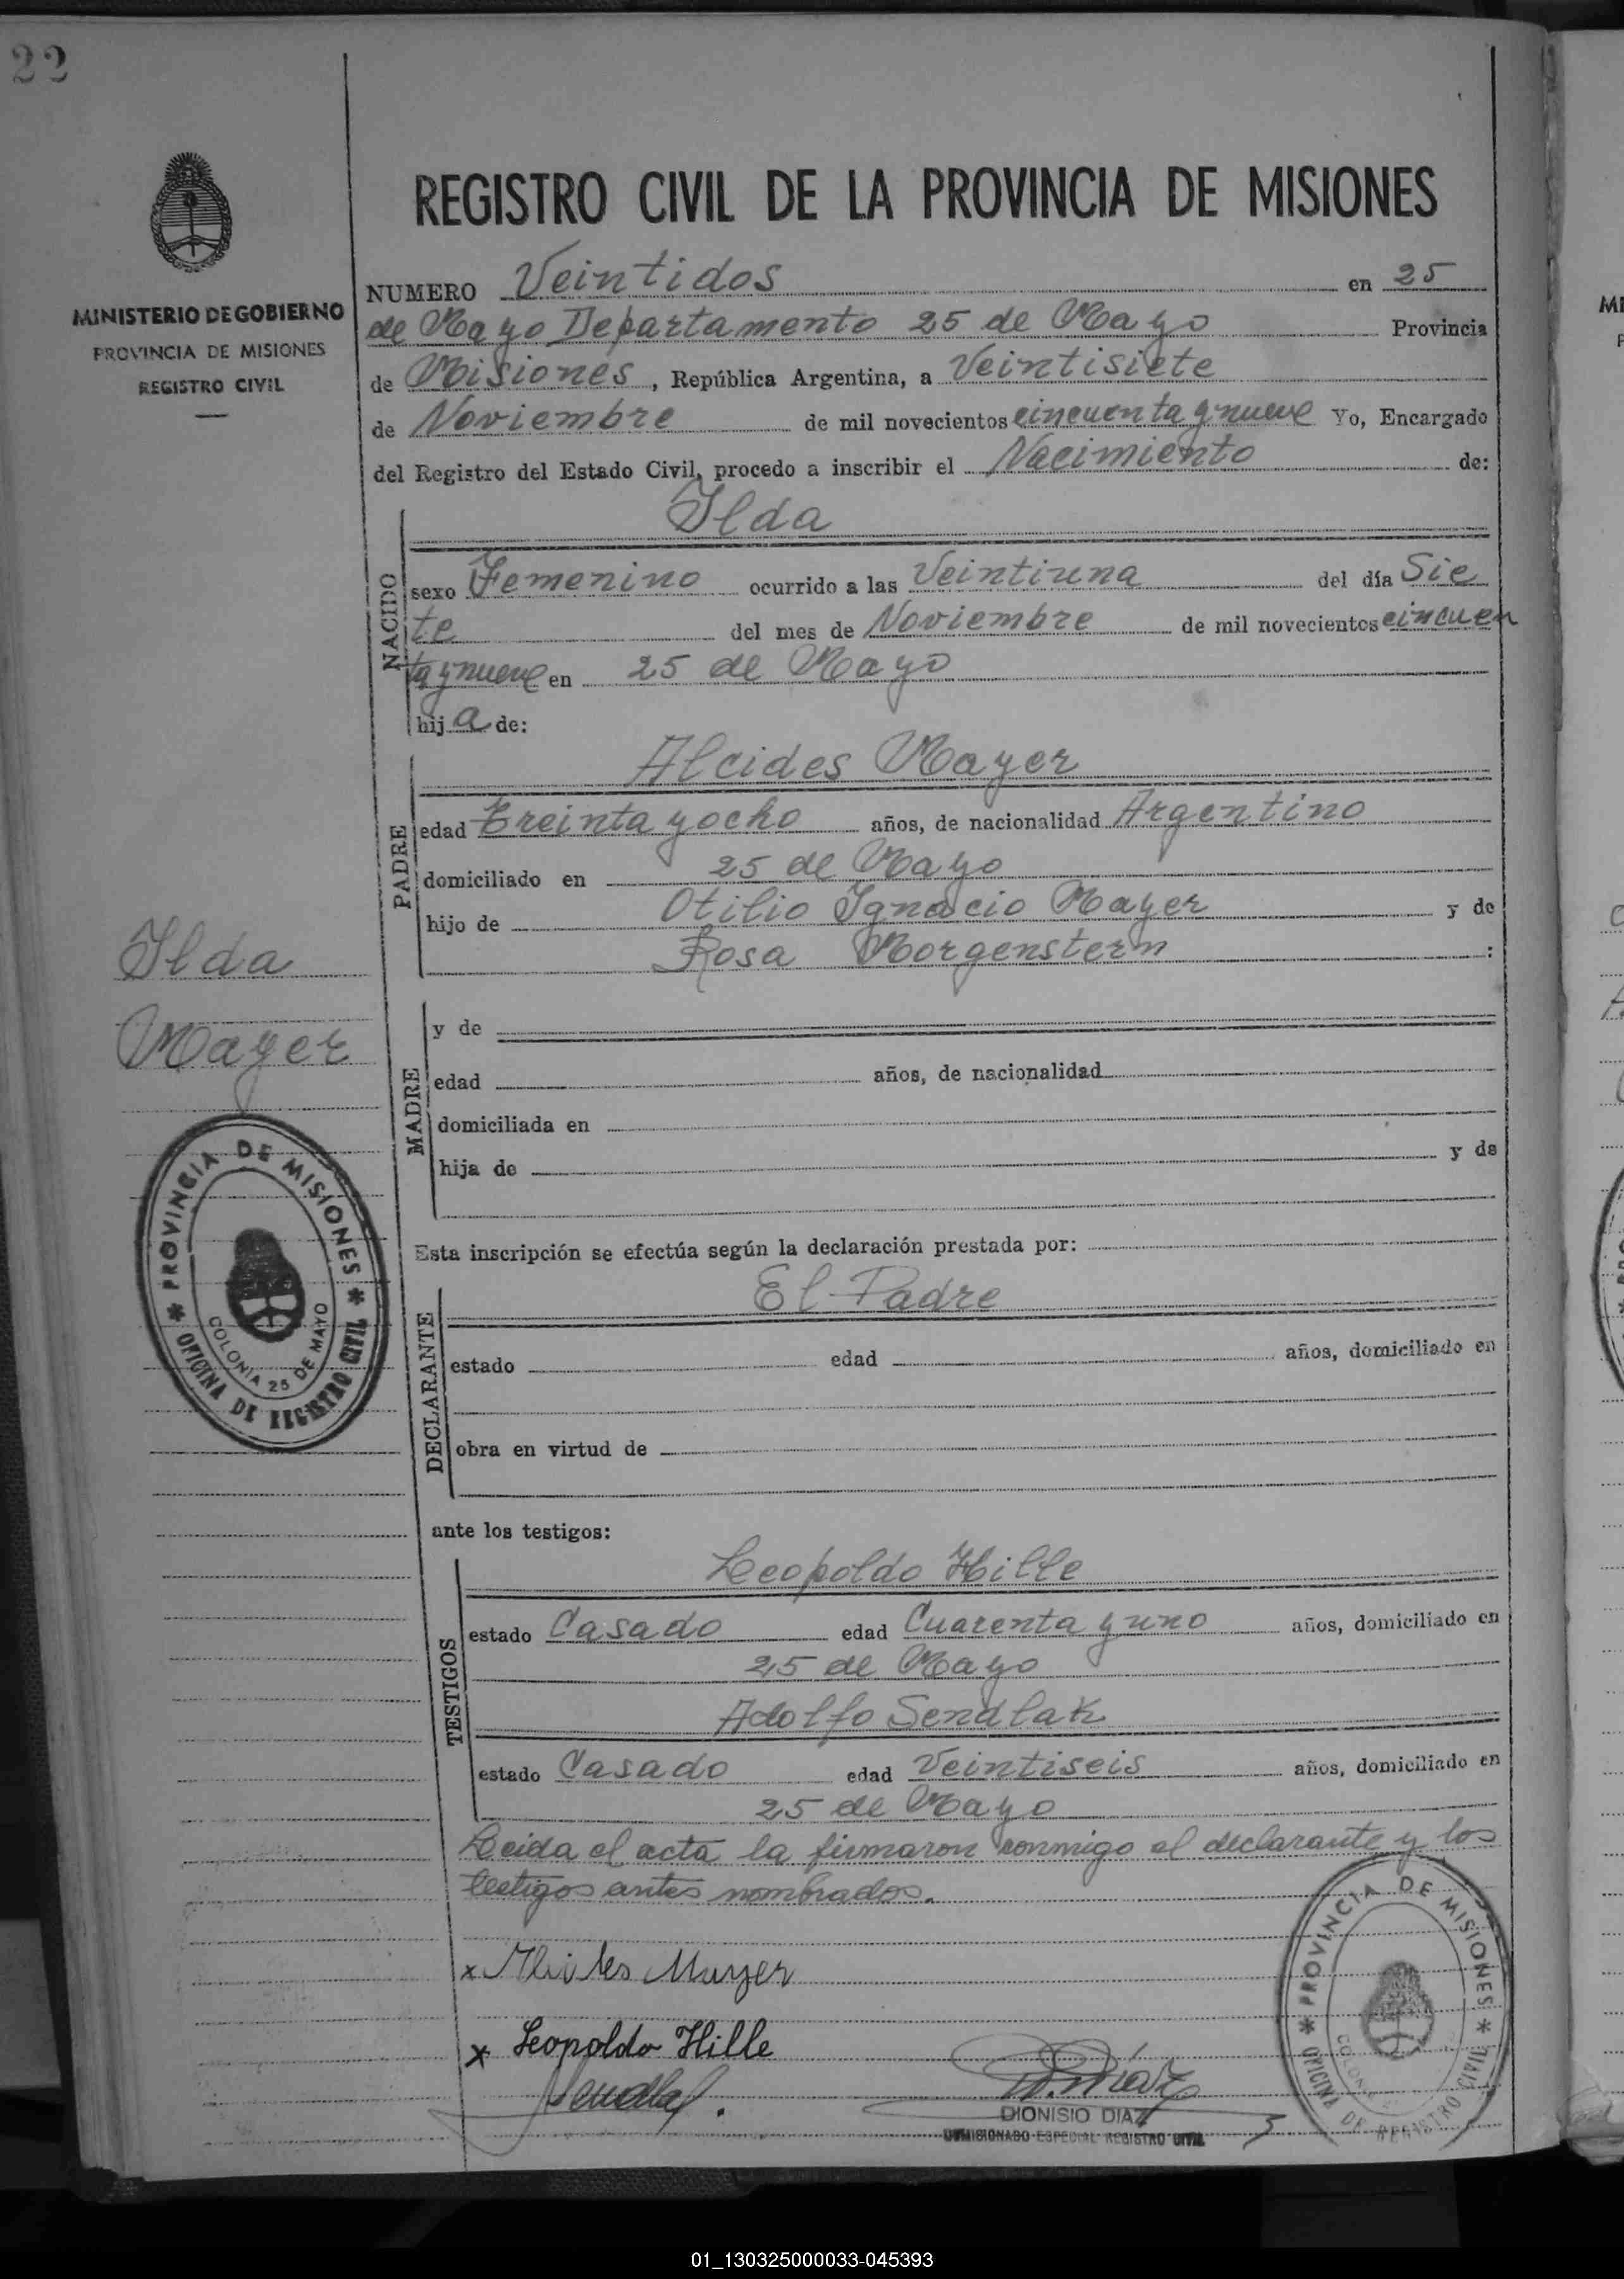 22
REGISTRO CIVIL DE LA PROVINCIA DE MISIONES
MINISTERIO DE GOBIERNO
PROVINCIA DE MISIONES
REGISTRO CIVIL
NUMERO Veintidos en 25
de Mayo Departamento 25 de Mayo Provincia
de Misiones, República Argentina, a Veintisiete
de Noviembre de mil novecientos cincuenta y nueve Yo, Encargado
del Registro del Estado Civil, procedo a inscribir el Nacimiento de:
NACIDO
Ilda
sexo Femenino ocurrido a las Veintiuna del día Sie
te del mes de Noviembre de mil novecientos cincuen
ta y nueve en 25 de Mayo
hij a de:
PADRE
Alcides Mayer
edad Treinta y ocho años, de nacionalidad Argentino
domiciliado en 25 de Mayo
hijo de Otilio Ignacio Mayer y de
Rosa Morgenstern :
Ilda
Mayer
MADRE
y de
edad años, de nacionalidad
domiciliada en
hija de y de
PROVINCIA DE MISIONES
OFICINA DE REGISTRO CIVIL
COLONIA 25 DE MAYO
Esta inscripción se efectúa según la declaración prestada por:
DECLARANTE
El Padre
estado edad años, domiciliado en
obra en virtud de
ante los testigos:
TESTIGOS
Leopoldo Hille
estado Casado edad Cuarenta y uno años, domiciliado en
25 de Mayo
Adolfo Sendlak
estado Casado edad Veintiseis años, domiciliado en
25 de Mayo
Leida el acta la firmaron conmigo el declarante y los
testigos antes nombrados.
x Alcides Mayer
x Leopoldo Hille
Sendlak.
D. Díaz
DIONISIO DIAZ
COMISIONADO ESPECIAL REGISTRO CIVIL
PROVINCIA DE MISIONES
OFICINA DE REGISTRO CIVIL
COLONI
01_130325000033-045393